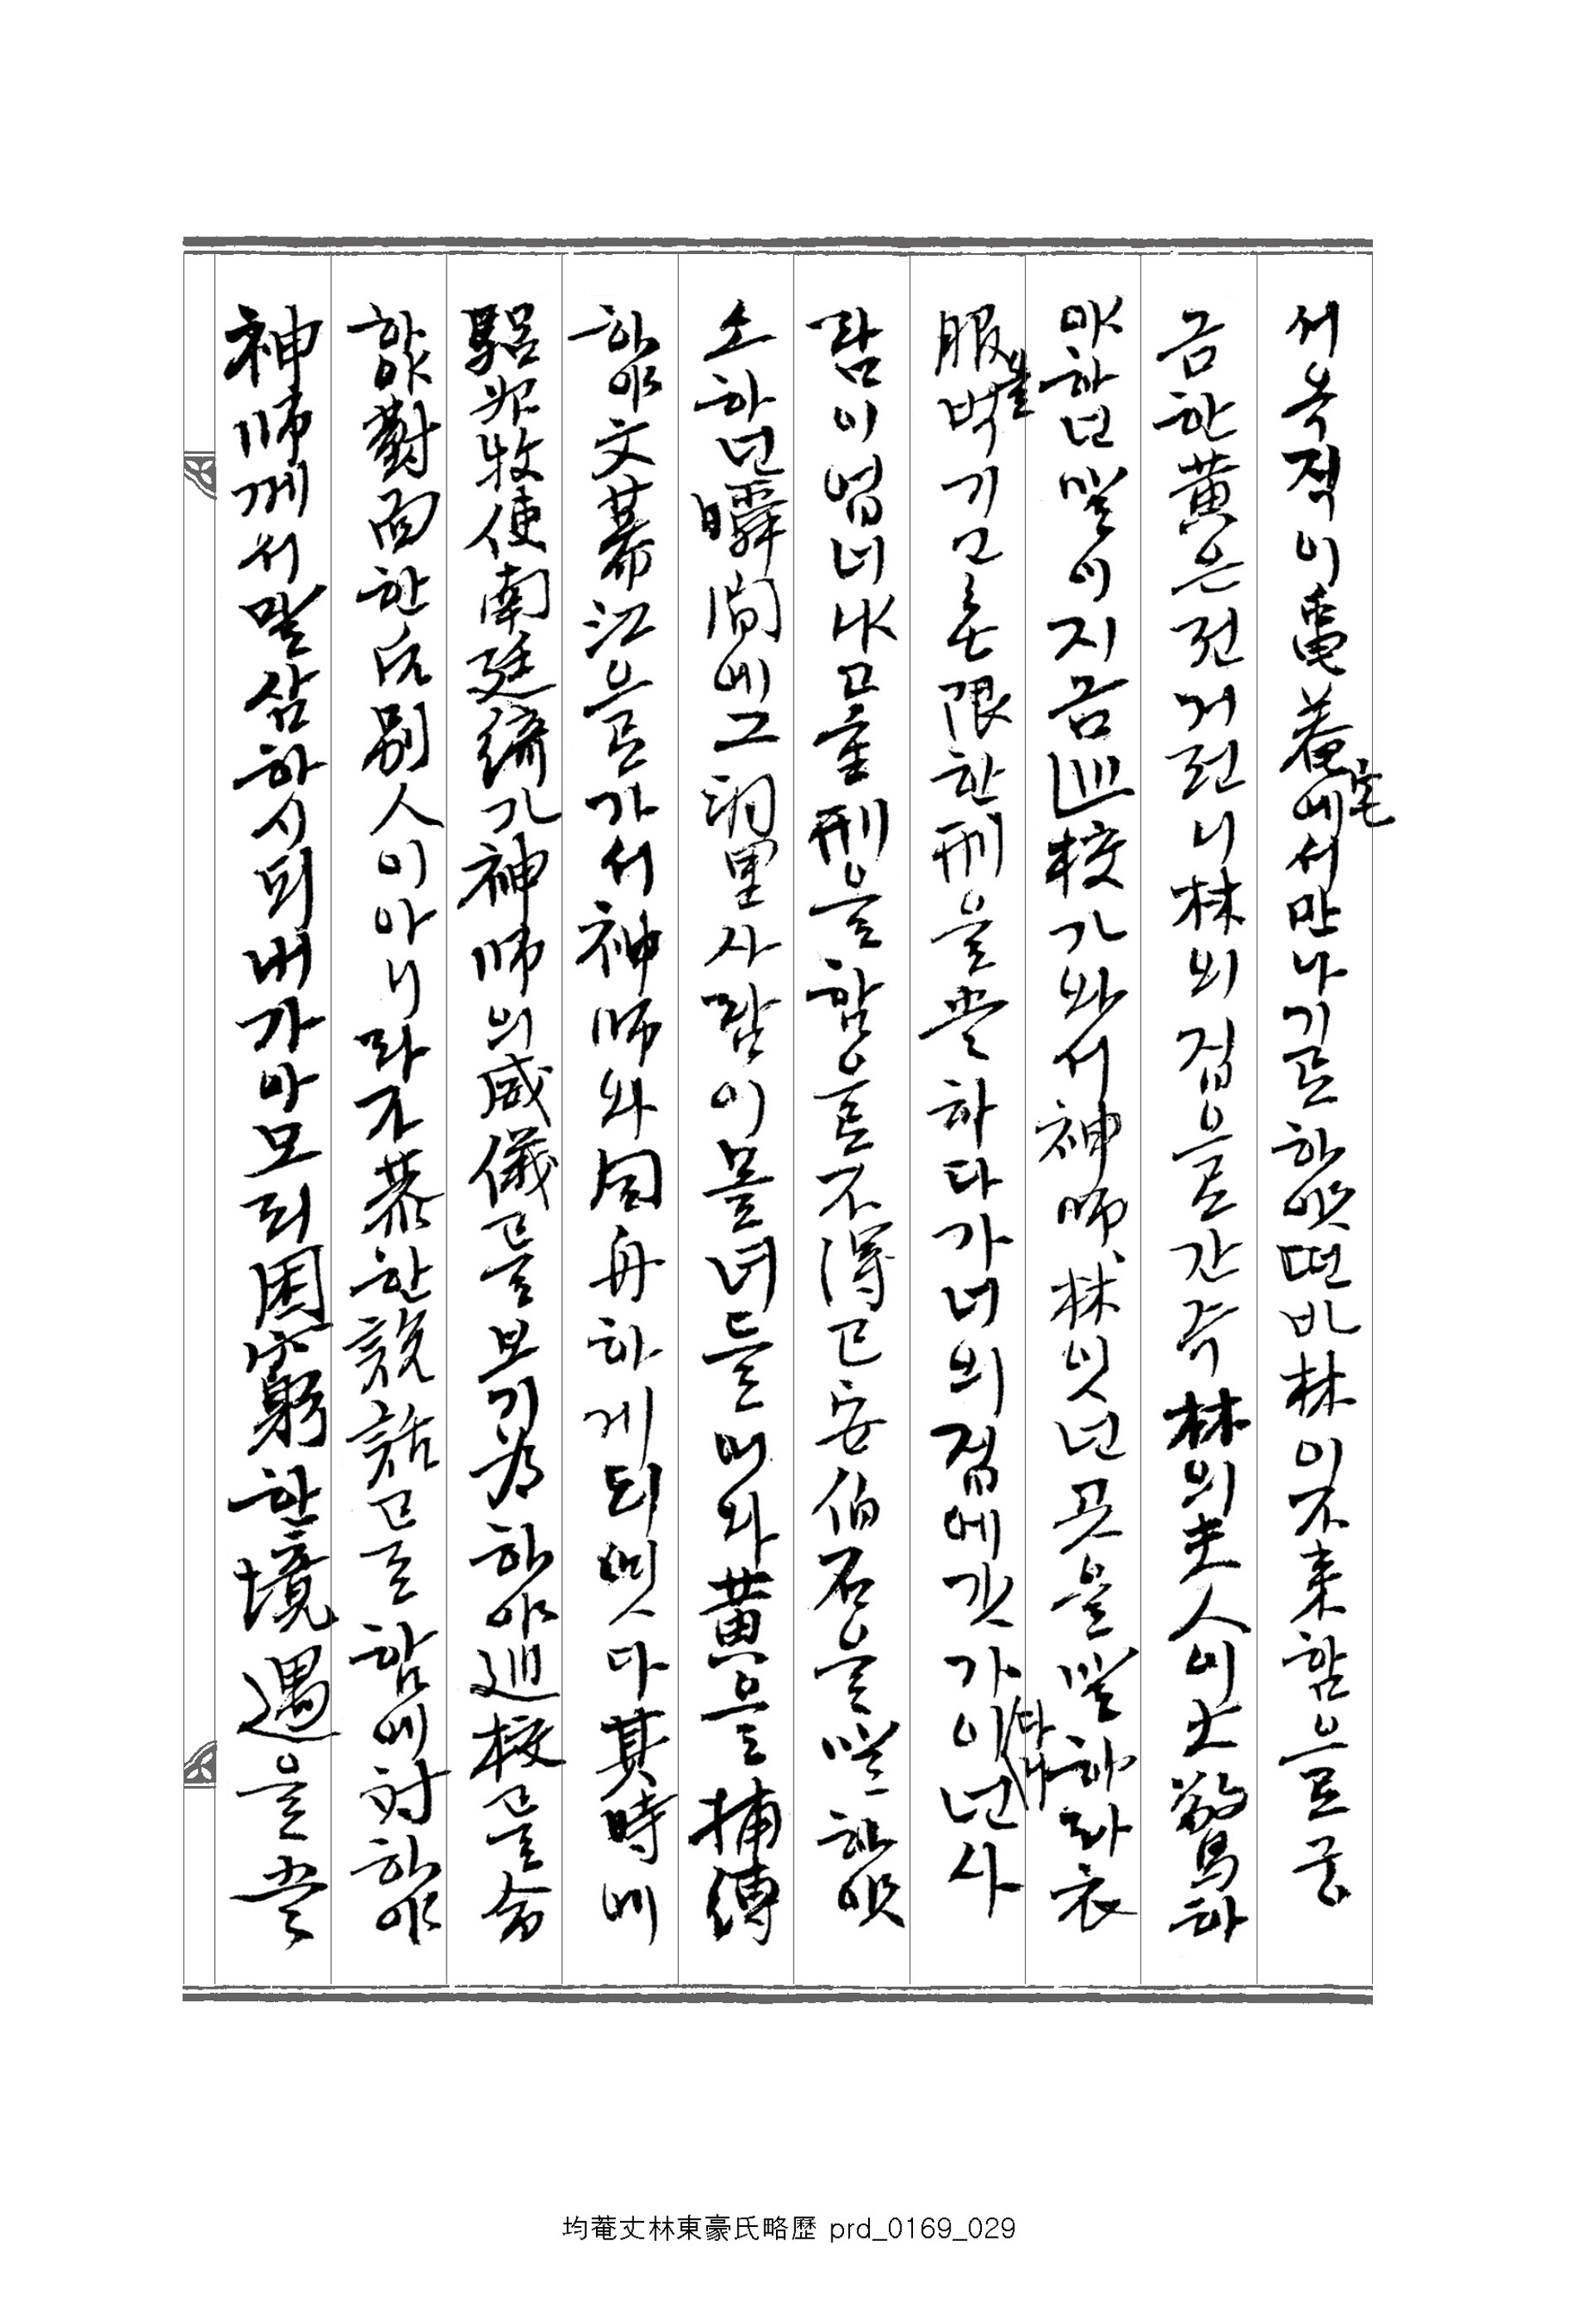 서속적이龜菴宅에서만나기로하엿떤바林이不來함으로궁
금한黃은전거런니林의집으로간즉林의夫人이大驚하
야하년말이지금巡校가와서神師、林잇넌곳을말하라衣
服을벅기고無限한刑을当하다가너의집에갓가이타나넌사
람이업너냐고重刑을함으로不得已安伯石을말하엿
소하년瞬間에그洞里사람이몰녀들어와黃을捕縛
하야文幕江으로가서神師와同舟하게되엿다其時에
驪州牧使南廷綺가神師의威儀를보기爲하야巡校를命
하야對面한后別人이아니라가恭한說話로함에対하야
神師께서말삼하시되내가아모리困窮한境遇을当
均菴丈林東豪氏略歷 prd_0169_029